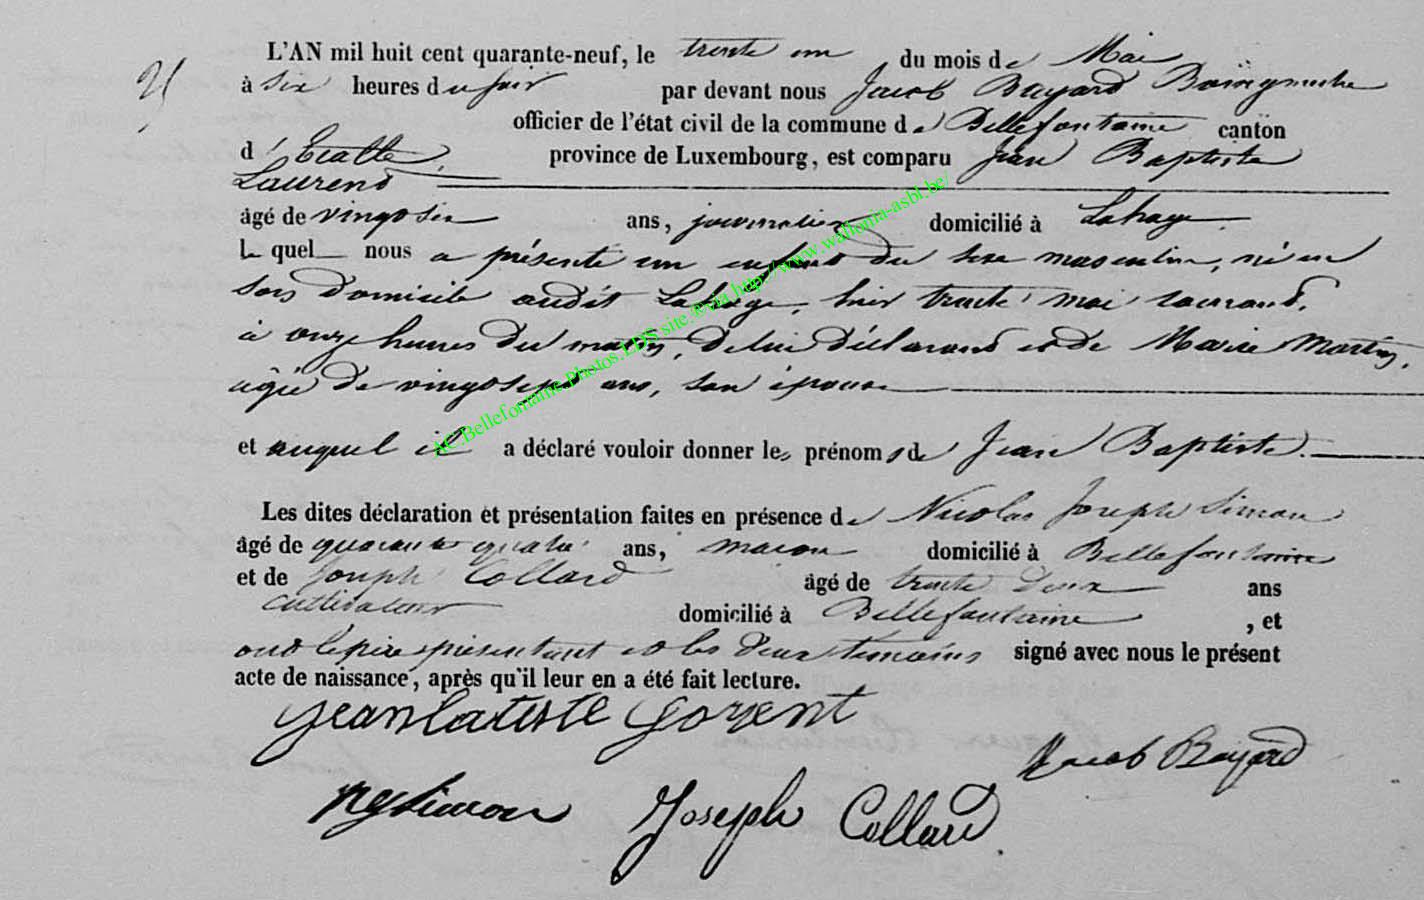 L'AN mil huit cent quarante-neuf, le trente un du mois de Mai
à six heures du soir par devant nous Jacob Bayard Bourgmestre
officier de l'état civil de la commune de Bellefontaine canton
d'Etalle, province de Luxembourg, est comparu Jean Baptiste
Laurend
âgé de vingt six ans, journalier domicilié à Lahage
Le quel nous a présenté un enfant du sexe masculin, né en
son domicile audit Lahage, hier trente mai courand,
à onze heures du matin, de lui déclarand et de Marie Martin,
âgée de vingt sept ans, son épouse
et auquel il a déclaré vouloir donner les prénoms de Jean Baptiste.
Les dites déclaration et présentation faites en présence de Nicolas Joseph Simon
âgé de quarante quatre ans, macon domicilié à Bellefontaine
et de Joseph Collard âgé de trente deux ans
cultivateur domicilié à Bellefontaine, et
ont le père présentant et les deux temoins signé avec nous le présent
acte de naissance, après qu'il leur en a été fait lecture.
Jacob Bayard
njsimon Joseph Collard
AC.Bellefontaine.Photos.LDS site.©via http://www.wallonia-asbl.be/